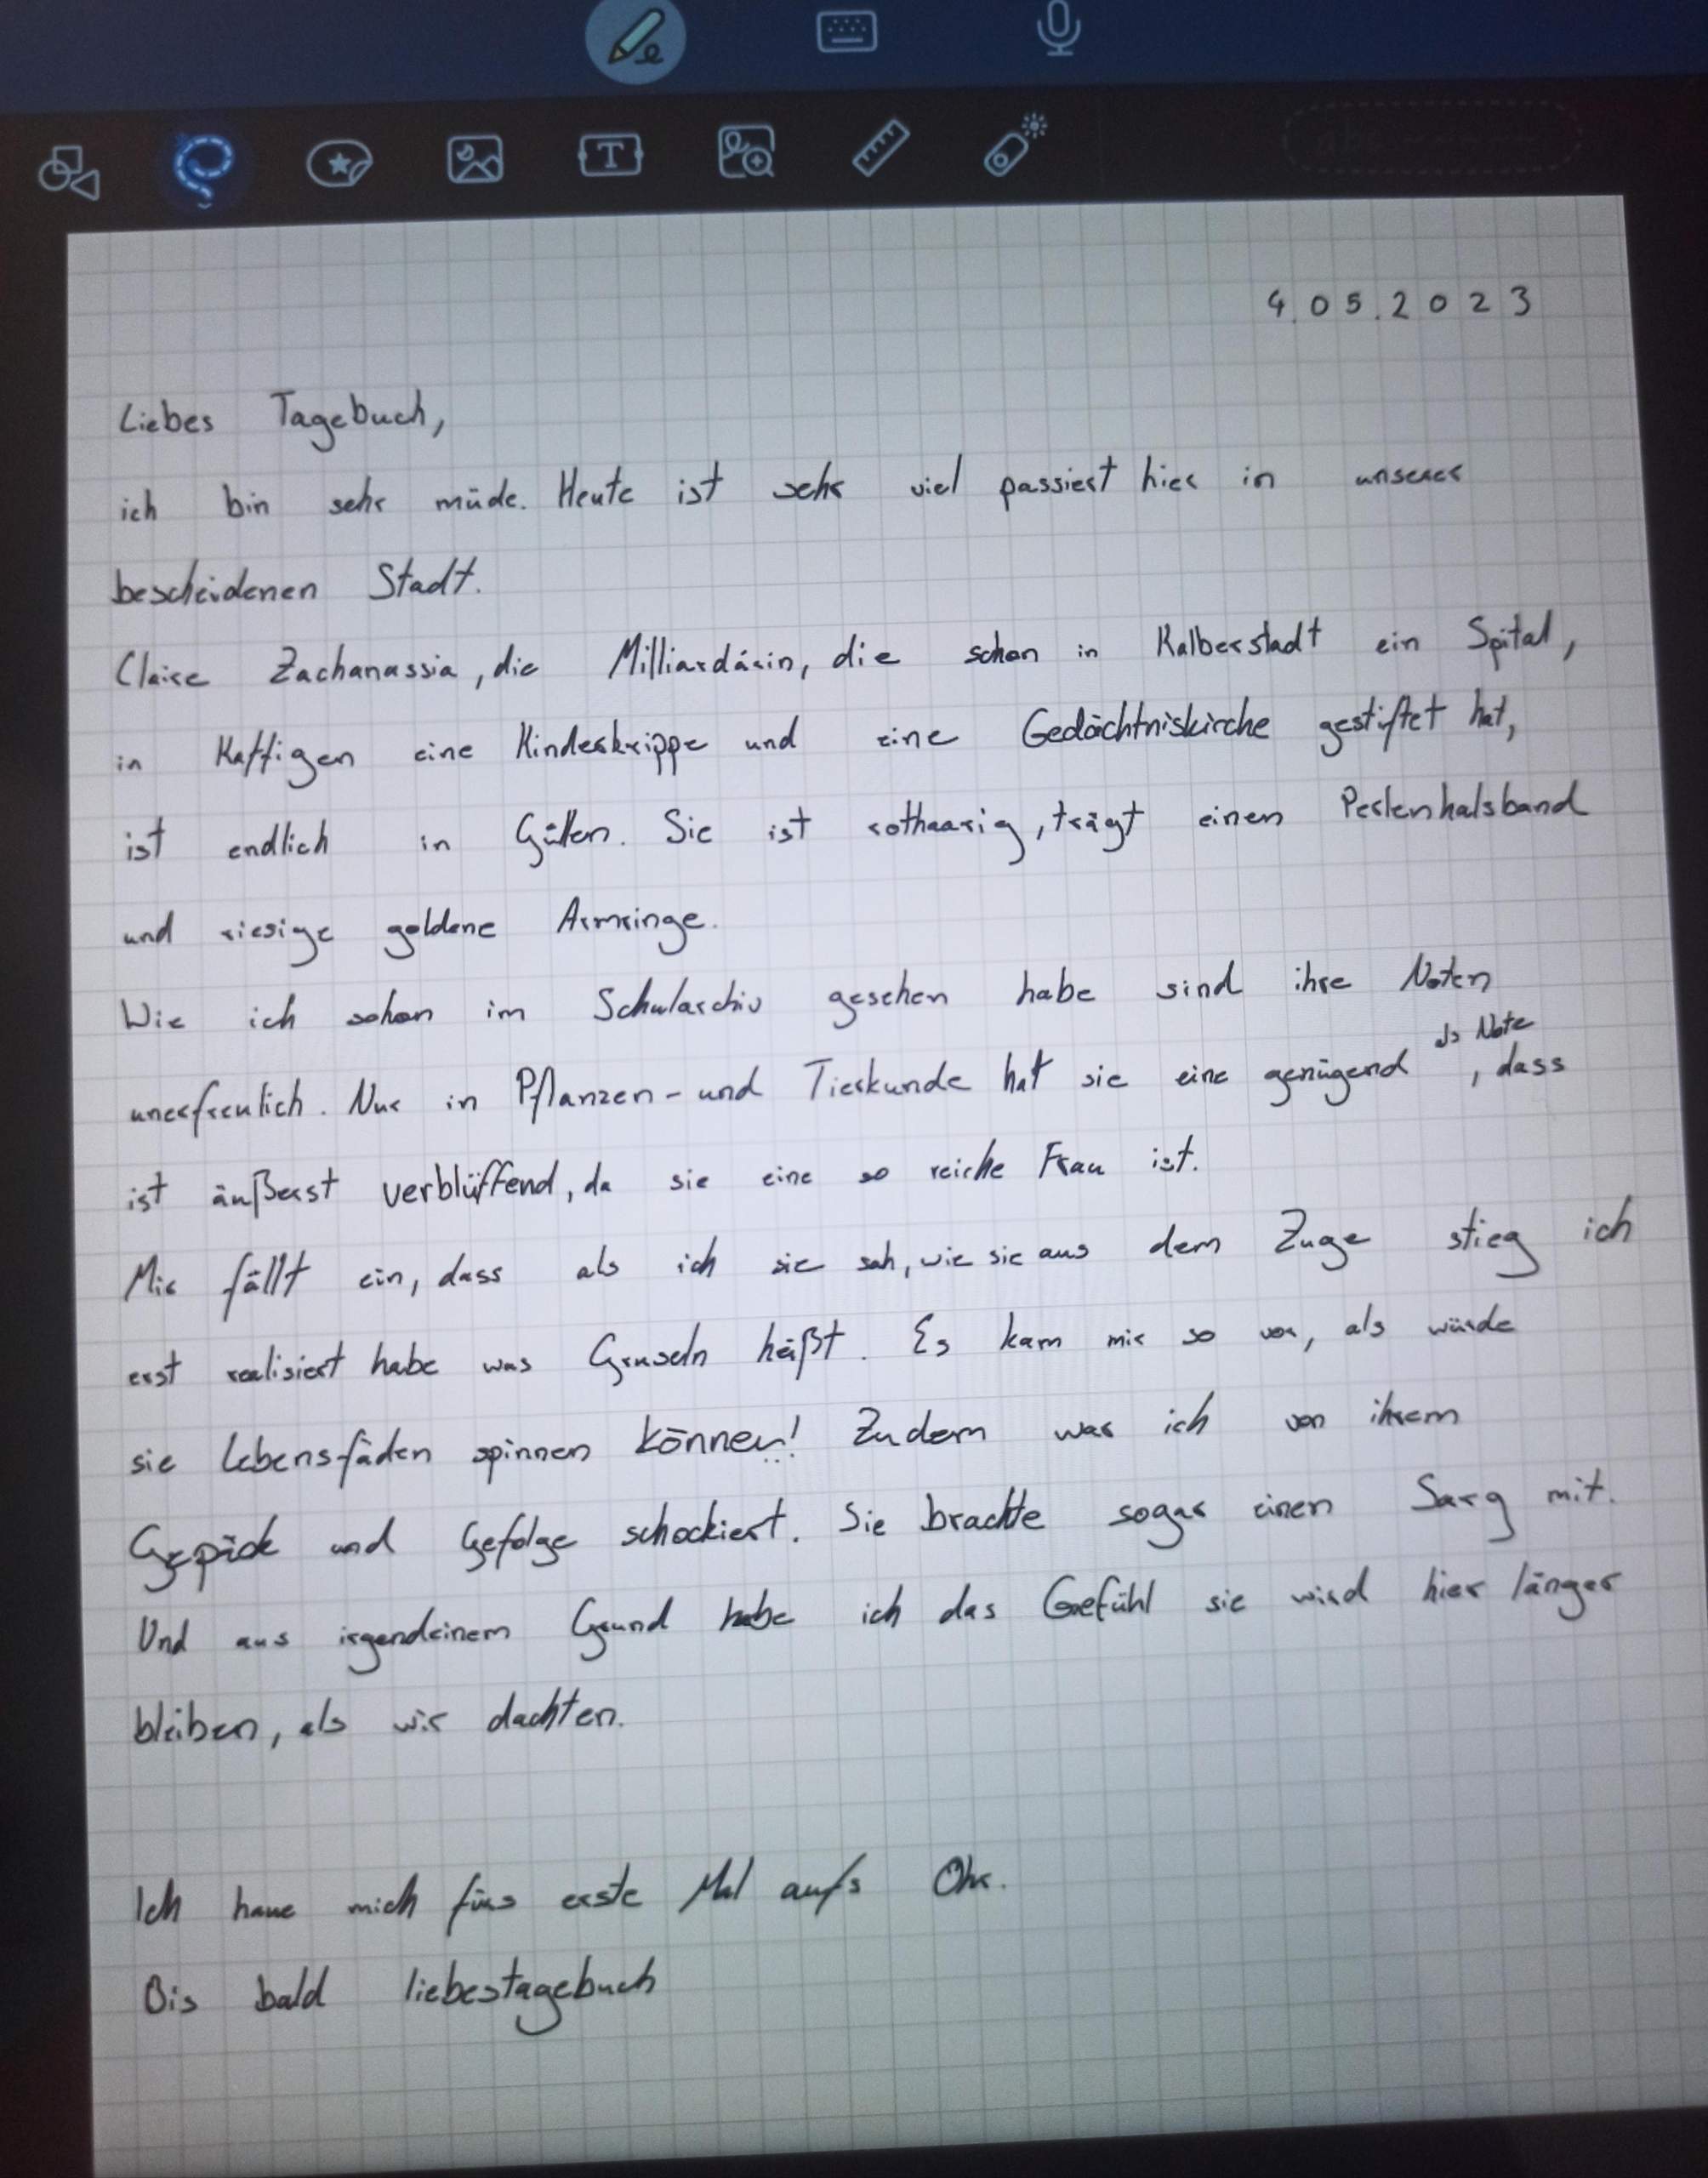 4.05.2023
Liebes Tagebuch,
ich bin sehr müde. Heute ist sehr viel passiert hier in unserer
bescheidenen Stadt.
Claire Zachanassia, die Milliardärin, die schon in Kalberstadt ein Spital,
in Kaffigen eine Kinderkrippe und eine Gedächtniskirche gestiftet hat,
ist endlich in Güllen. Sie ist rothaarig, trägt einen Perlenhalsband
und riesige goldene Armringe.
Wie ich schon im Schularchiv gesehen habe sind ihre Noten
unerfreulich. Nur in Pflanzen- und Tierkunde hat sie eine genügend als Note, dass
ist äußerst verblüffend, da sie eine so reiche Frau ist.
Mir fällt ein, dass als ich sie sah, wie sie aus dem Zuge stieg ich
erst realisiert habe was Gruseln heißt. Es kam mir so vor, als würde
sie Lebensfäden spinnen können! Zudem war ich von ihrem
Gepäck und Gefolge schockiert. Sie brachte sogar einen Sarg mit.
Und aus irgendeinem Grund habe ich das Gefühl sie wird hier länger
bleiben, als wir dachten.
Ich haue mich fürs erste Mal aufs Ohr.
Bis bald liebestagebuch